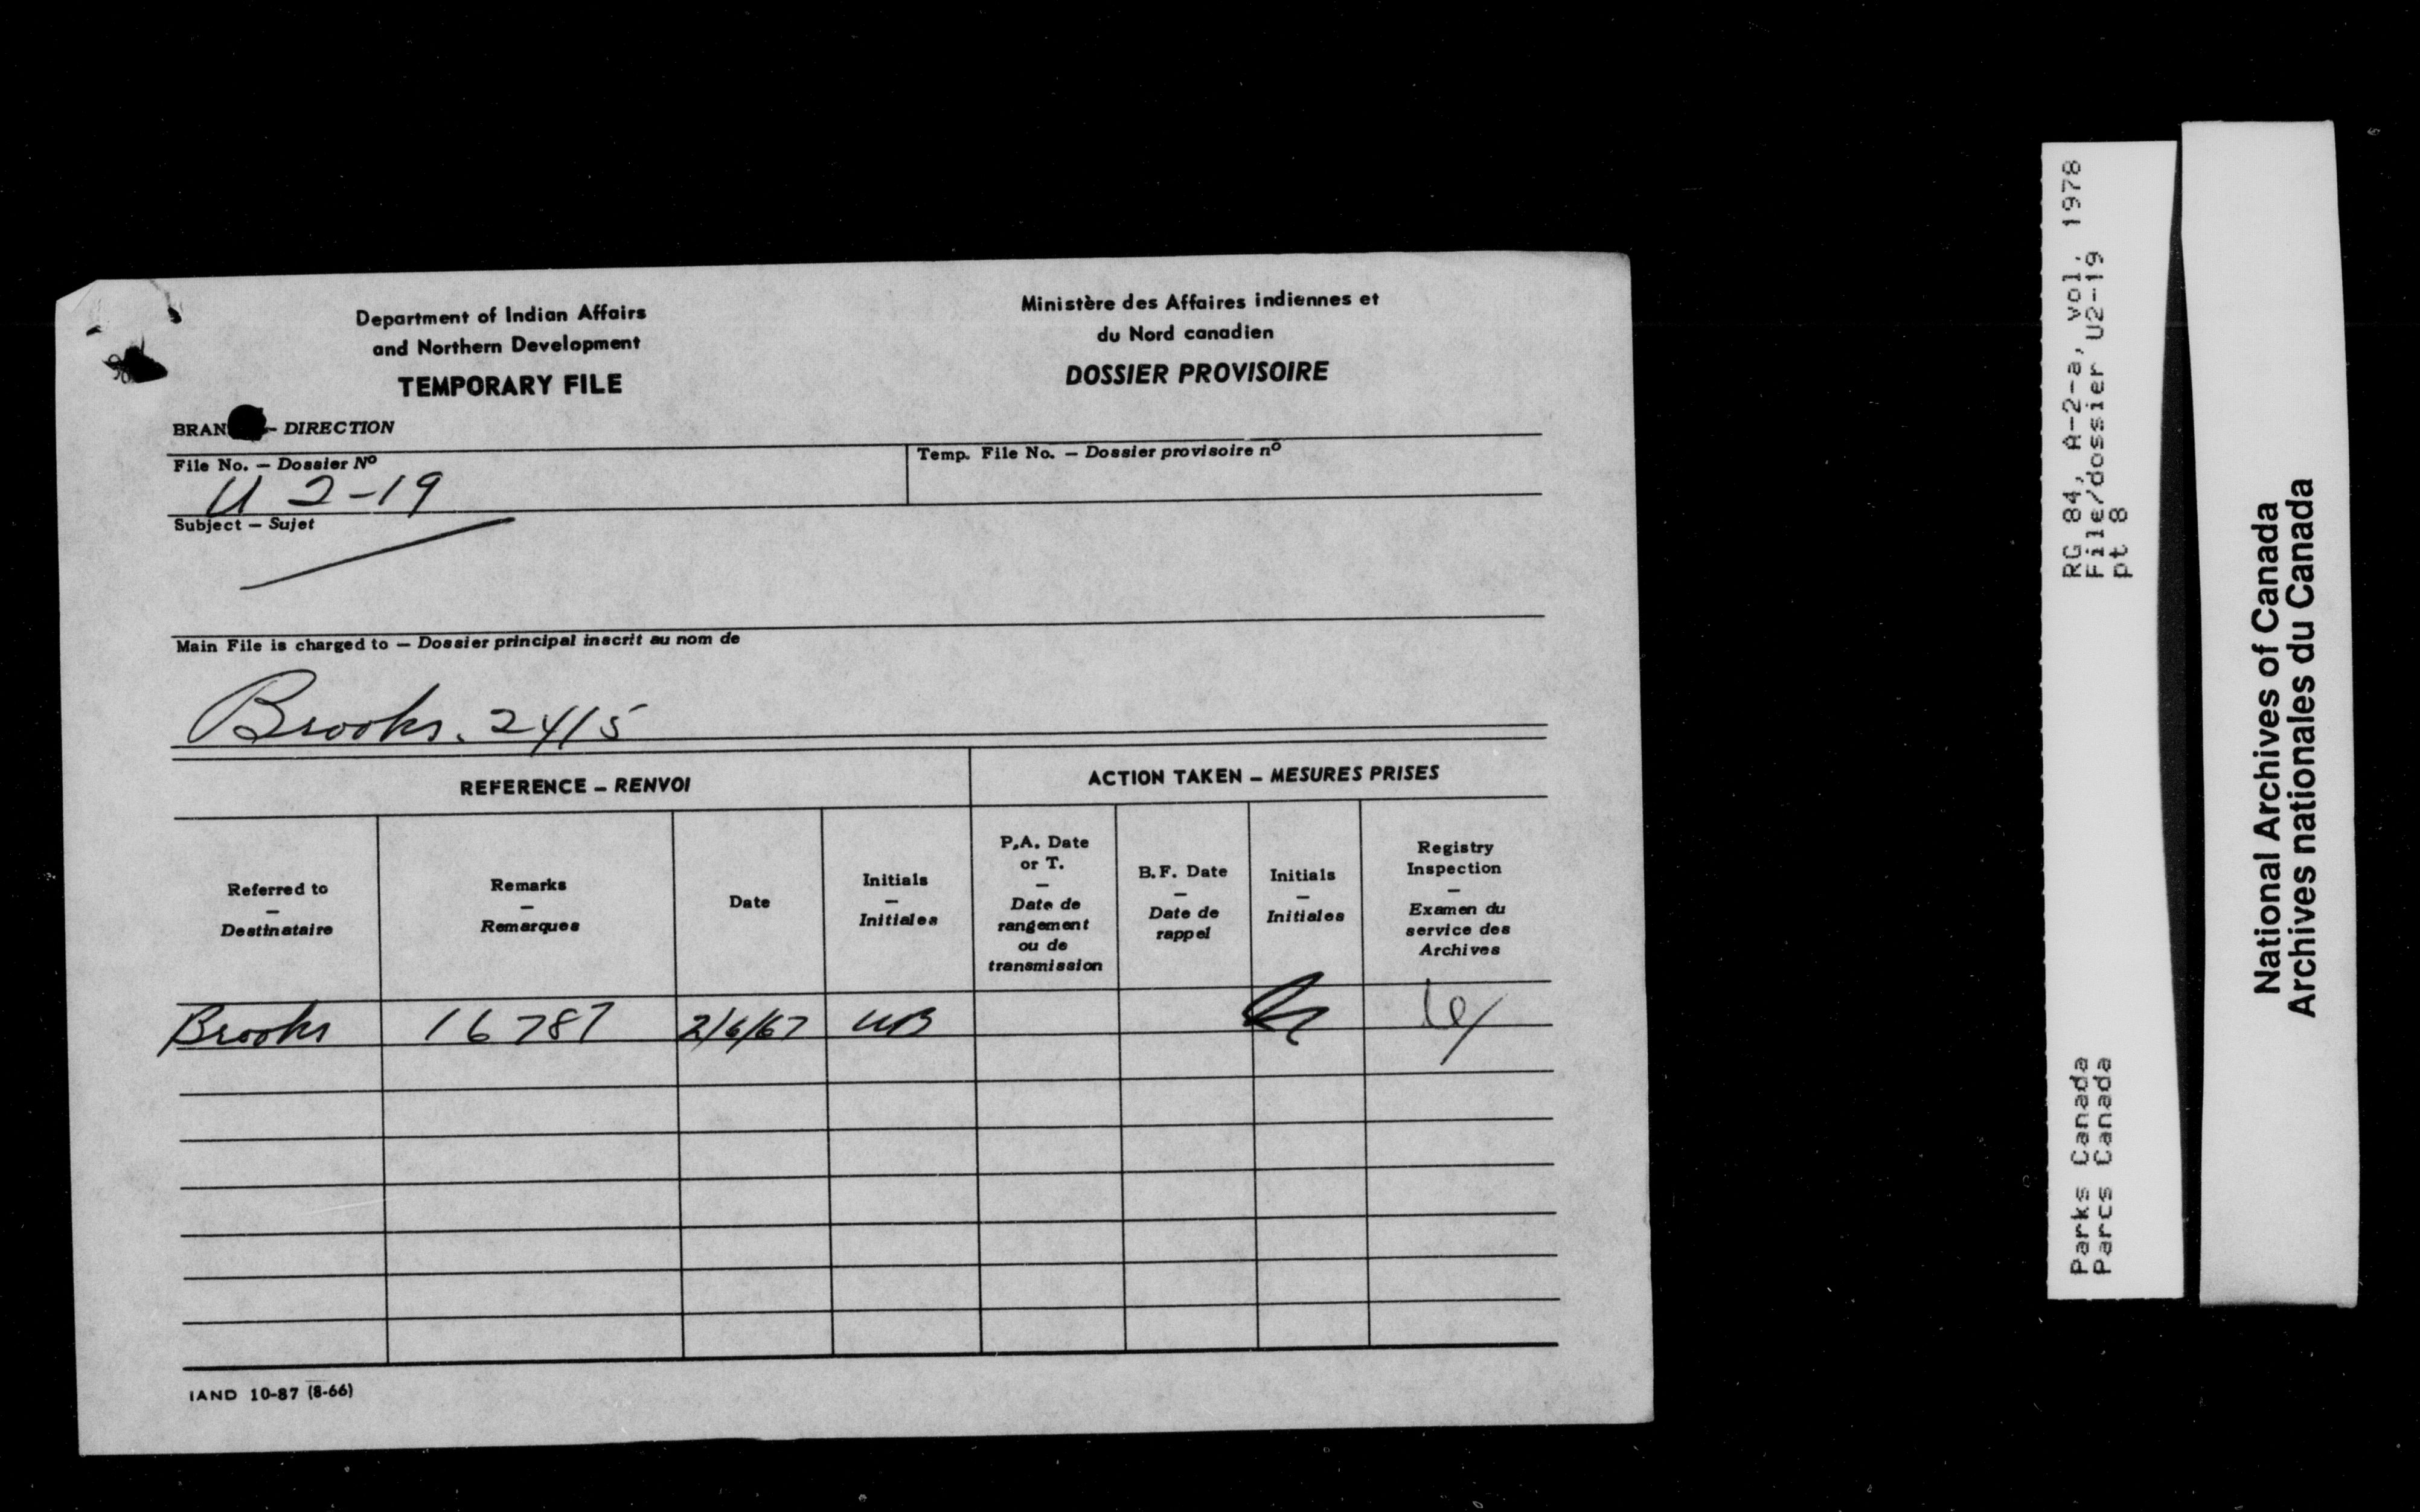 Department of Indian Affairs
and Northern Development
TEMPORARY FILE
Ministère des Affaires indiennes et
du Nord canadien
DOSSIER PROVISOIRE
BRAN - DIRECTION
File No. — Dossier Nº
U 2-19
Temp. File No. — Dossier provisoire nº
Subject — Sujet
Main File is charged to — Dossier principal inscrit au nom de
Brooks. 24/5
REFERENCE — RENVOI
ACTION TAKEN — MESURES PRISES
Referred to
—
Destinataire
Remarks
—
Remarques
Date
Initials
—
Initiales
P.A. Date
or T.
—
Date de
rangement
ou de
transmission
B.F. Date
—
Date de
rappel
Initials
—
Initiales
Registry
Inspection
—
Examen du
service des
Archives
Brooks 16787 2/6/67 WB
IAND 10-87 (8-66)
RG 84, A-2-a, vol. 1978
File/dossier U2-19
pt 8
Parks Canada
Parcs Canada
National Archives of Canada
Archives nationales du Canada